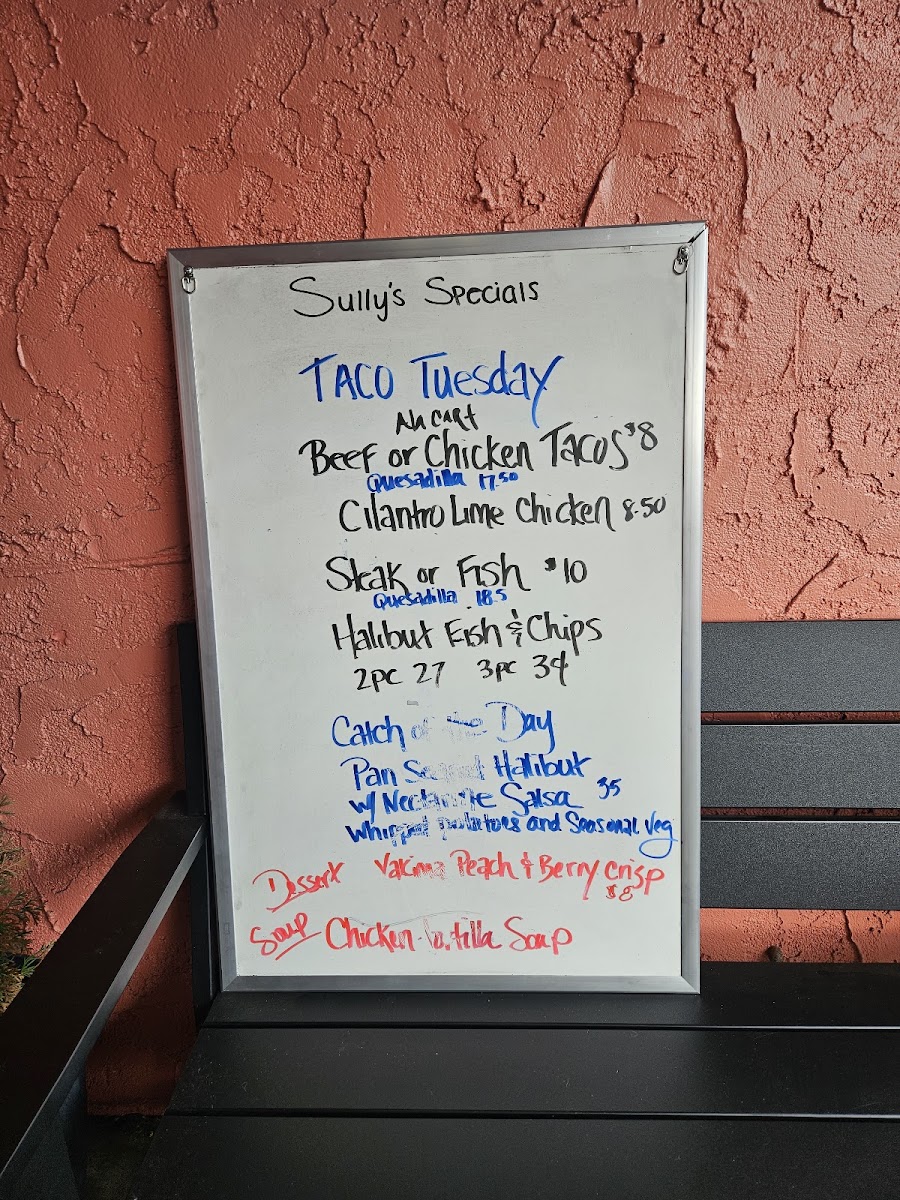 Sully's Specials
TACO Tuesday
Ala CART
Beef or Chicken Tacos $8
Quesadilla 17.50
Cilantro Lime Chicken 8.50
Steak or Fish $10
Quesadilla 18.5
Halibut Fish & Chips
2pc 27 3pc 34
Catch of the Day
Pan Seared Halibut
w/ Nectarine Salsa 35
Whipped potatoes and Seasonal Veg
Dessert Yakima Peach & Berry crisp
$8
Soup Chicken tortilla Soup